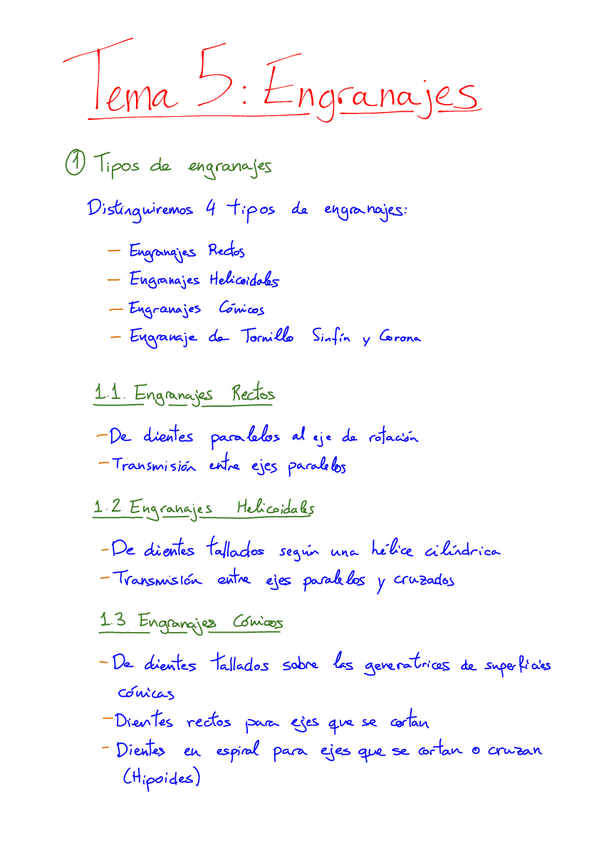 Tema 5: Engranajes
① Tipos de engranajes
Distinguiremos 4 tipos de engranajes:
— Engranajes Rectos
— Engranajes Helicoidales
— Engranajes Cónicos
— Engranaje de Tornillo Sinfín y Corona
1.1. Engranajes Rectos
- De dientes paralelos al eje de rotación
- Transmisión entre ejes paralelos
1.2 Engranajes Helicoidales
- De dientes tallados según una hélice cilíndrica
- Transmisión entre ejes paralelos y cruzados
1.3 Engranajes Cónicos
- De dientes tallados sobre las generatrices de superficies
cónicas
- Dientes rectos para ejes que se cortan
- Dientes en espiral para ejes que se cortan o cruzan
(Hipoides)